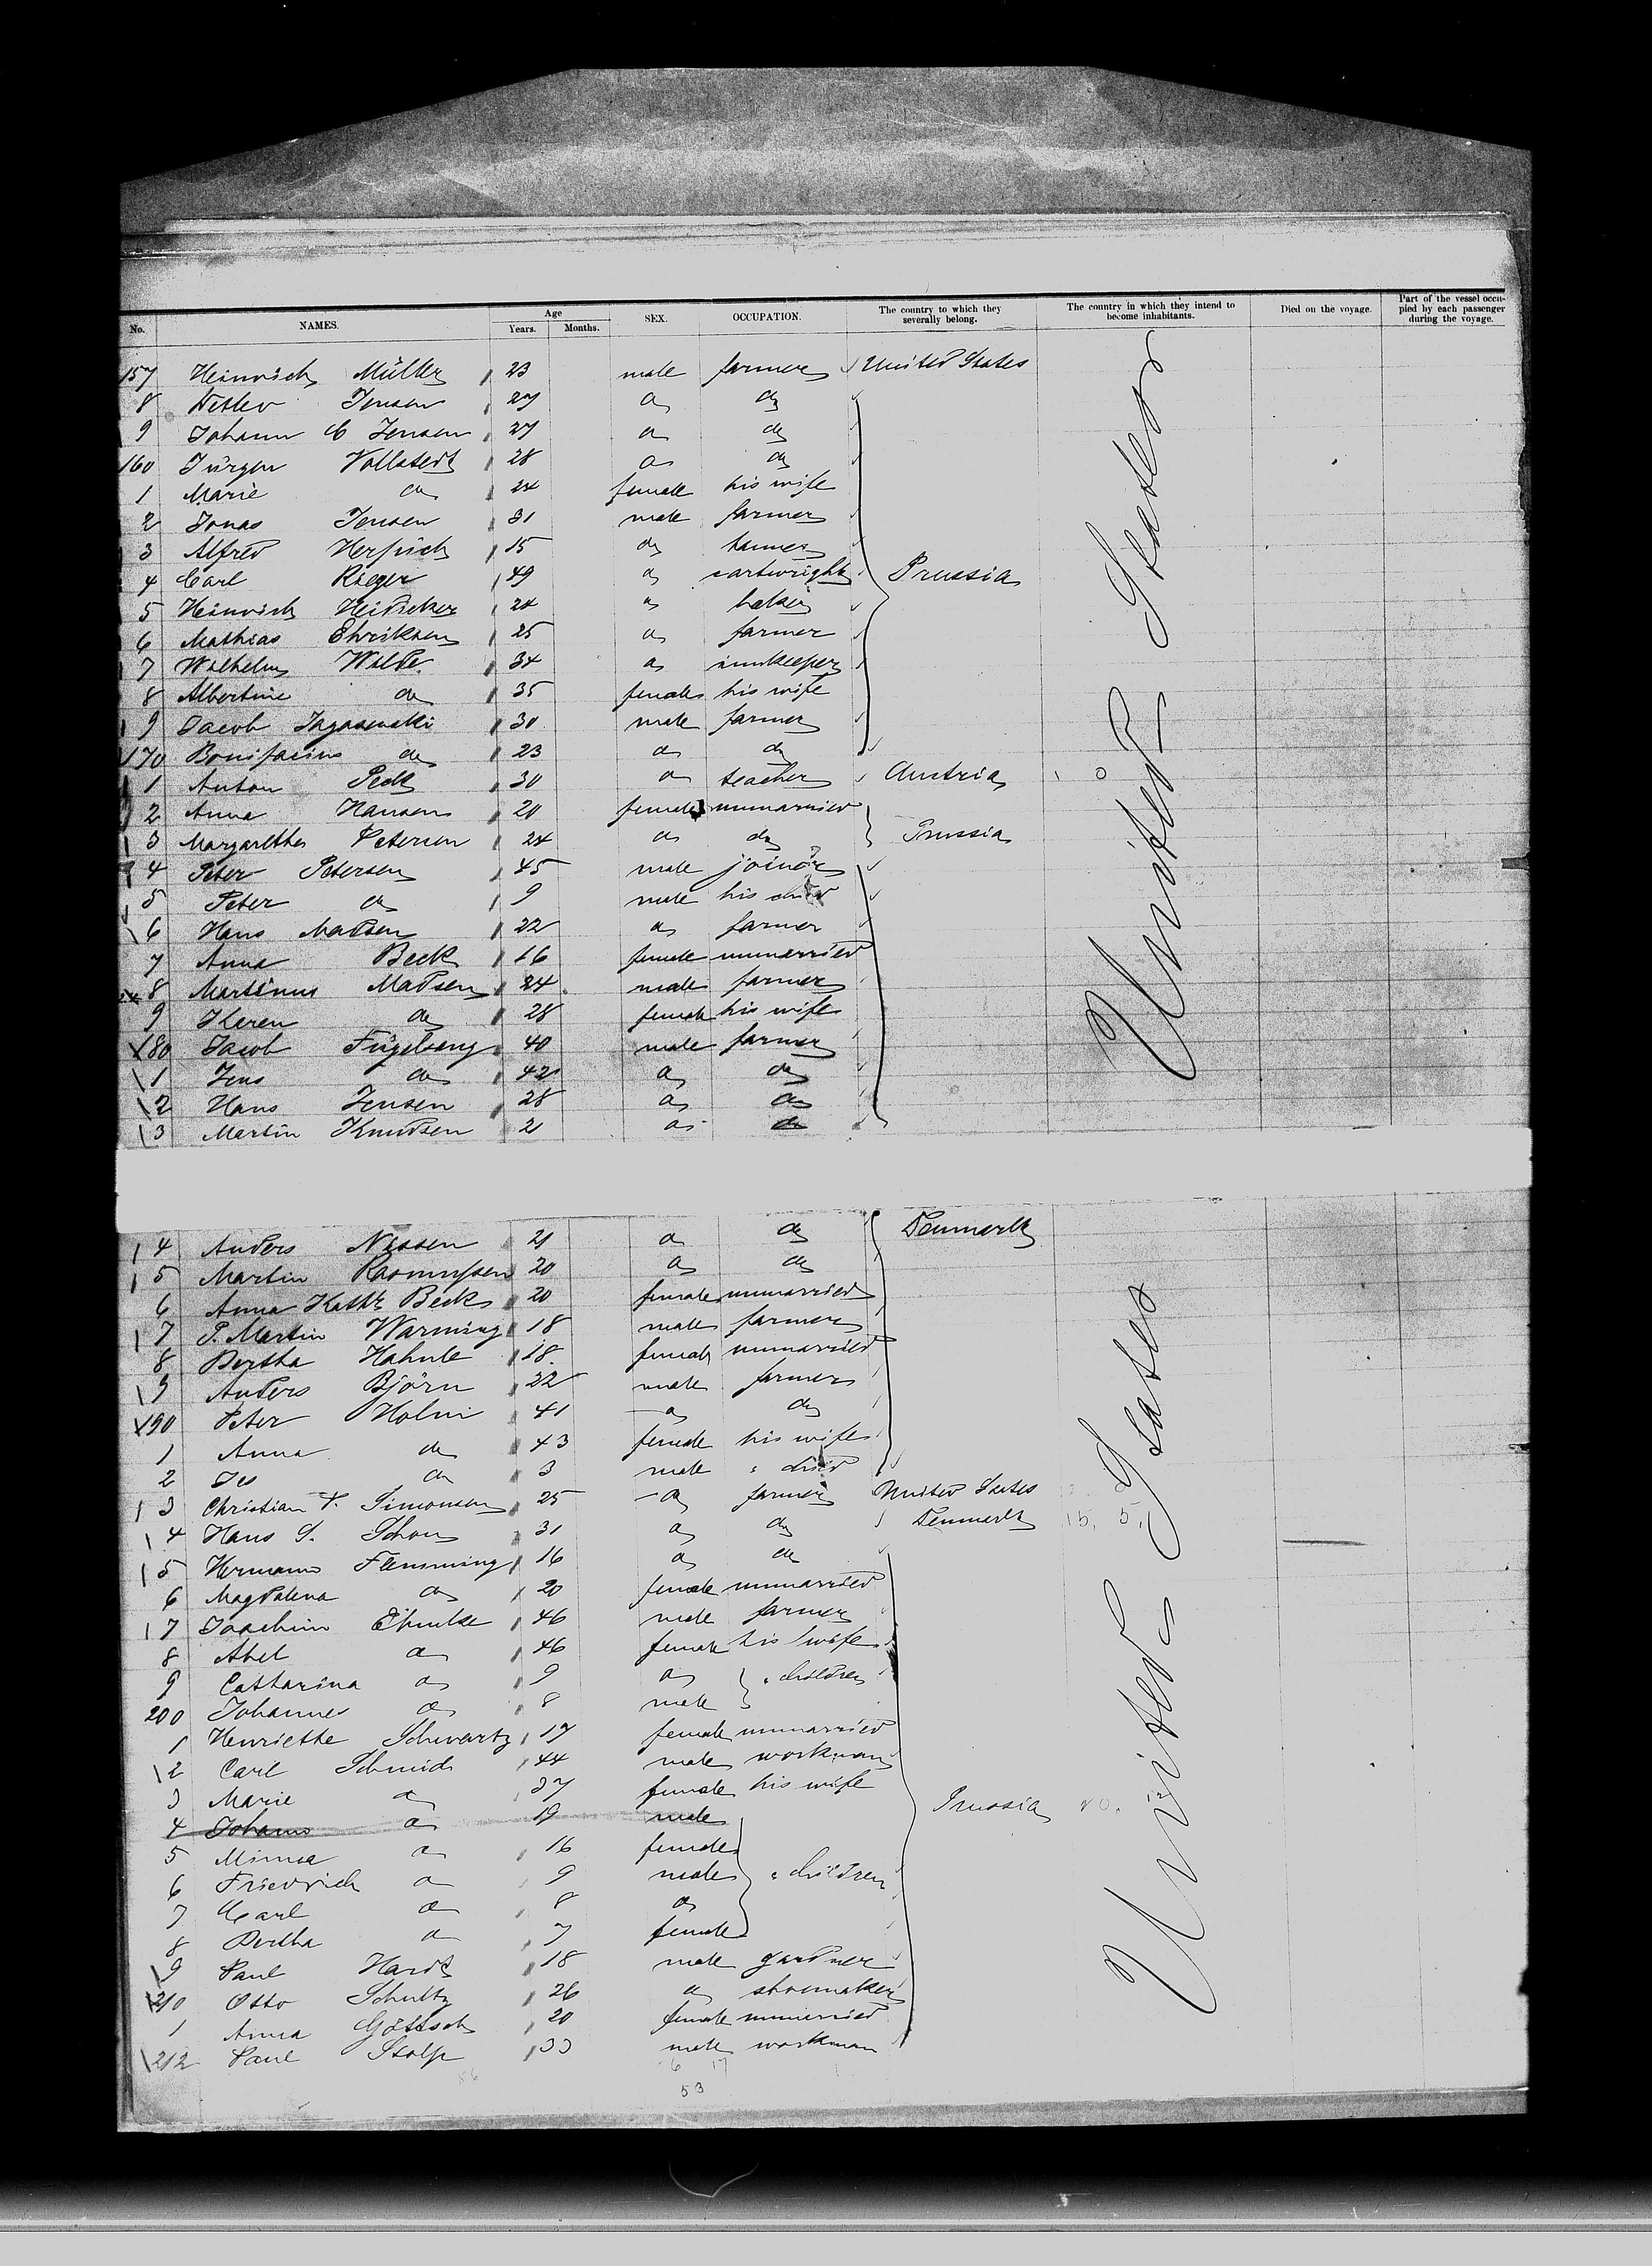 No. NAMES. Age Years. Months. SEX. OCCUPATION. The country to which they severally belong. The country in which they intend to become inhabitants. Died on the voyage. Part of the vessel occupied by each passenger during the voyage.
157 Heinrich Müller 23 male farmer United States
8 Detlev Jensen 27 do do
9 Johann C Jensen 27 do do
160 Jürgen Vollstedt 28 do do
1 Marie do 24 female his wife
2 Jonas Jensen 31 male farmer
3 Alfred 15 do
4 Carl Rieger 49 do cartwright Prussia
5 Heinrich Heidicker 24 do baker
6 Mathias Ehriksen 25 do farmer
7 Wilhelm Wilde 34 do innkeeper
8 Albertine do 35 female his wife
9 Jacob 30 male farmer
170 Bonifacius do 23 do do
1 Anton Peck 30 do teacher Austria
2 Anna Hansen 20 female unmarried
3 Margarethe Petersen 24 do do Prussia
4 Peter Petersen 45 male joiner
5 Peter do 9 male his child
6 Hans Madsen 22 do farmer
7 Anna Beck 16 female unmarried
8 Martinus Madsen 24 male farmer
9 Karen do 28 female his wife
180 Jacob 40 male farmer
1 Jens do 42 do do
2 Hans Jensen 28 do do
3 Martin Knudsen 21 do do
United States
4 Anders Nissen 21 do do Denmark
5 Martin Rasmussen 20 do do
6 Anna Kathr Beck 20 female unmarried
7 P. Martin Warming 18 male farmer
8 Bertha Hahnle 18 female unmarried
9 Anders Björn 22 male farmer
190 Peter Holm 41 do do
1 Anna do 43 female his wife
2 Is do 3 male " child
3 Christian P. Simonsen 25 do farmer United States
4 Hans S. Schou 31 do do Denmark
5 Hermann Flemming 16 do do
6 Magdalena do 20 female unmarried
7 Joachim Ehmke 46 male farmer
8 Abel do 46 female his wife
9 Catharina do 9 do " children
200 Johannes do 8 male
1 Henriette Schwartz 17 female unmarried
2 Carl Schmidt 44 male workman
3 Marie do 37 female his wife Prussia
4 Johann do 19 male
5 Minna do 16 female
6 Friedrich do 9 male " children
7 Carl do 8 do
8 Bertha do 7 female
9 Paul Hardt 18 male gardner
210 Otto Schultz 26 do shoemaker
1 Anna Göttsch 20 female unmarried
212 Paul Stolp 33 male workman
United States
53